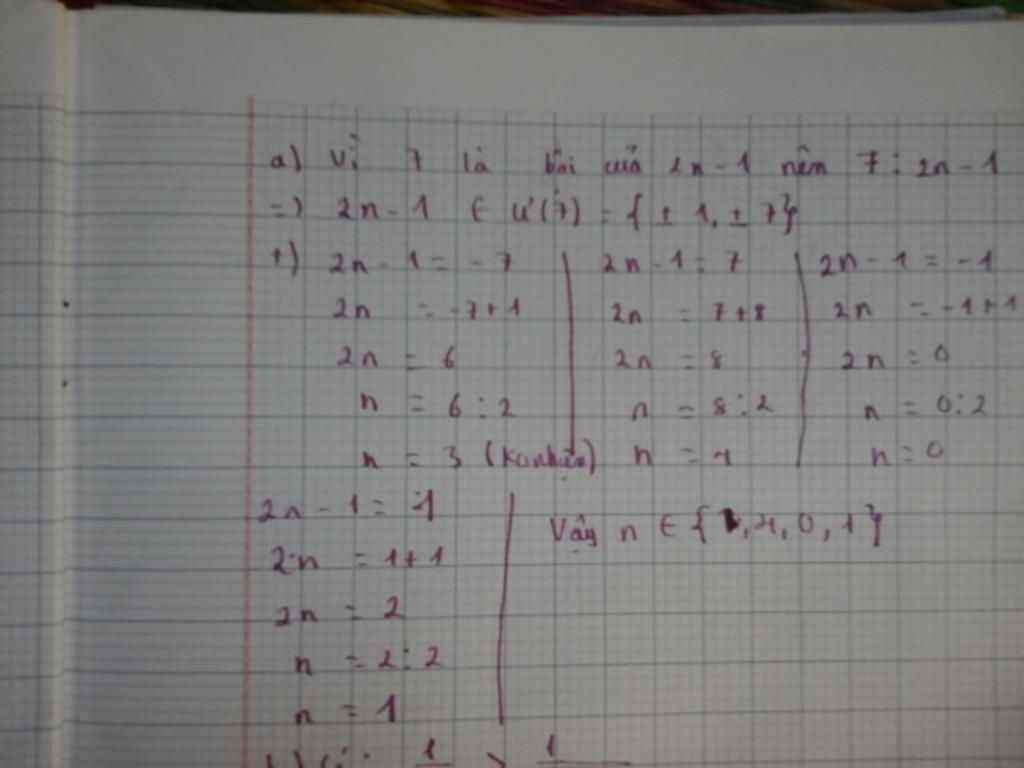 a) Vì 7 là bội của 2n - 1 nên 7 ⋮ 2n - 1
=) 2n - 1 ∈ Ư(7) = { ± 1, ± 7}
+) 2n - 1 = - 7
2n = -7+1
2n = 6
n = 6 : 2
n = 3
2n - 1 = 7
2n = 7+1
2n = 8
n = 8 : 2
n = 4
2n - 1 = -1
2n = -1+1
2n = 0
n = 0:2
n = 0
2n - 1 = 1
2n = 1+1
2n = 2
n = 2 : 2
n = 1
Vậy n ∈ { , 4, 0, 1}
1 > 1